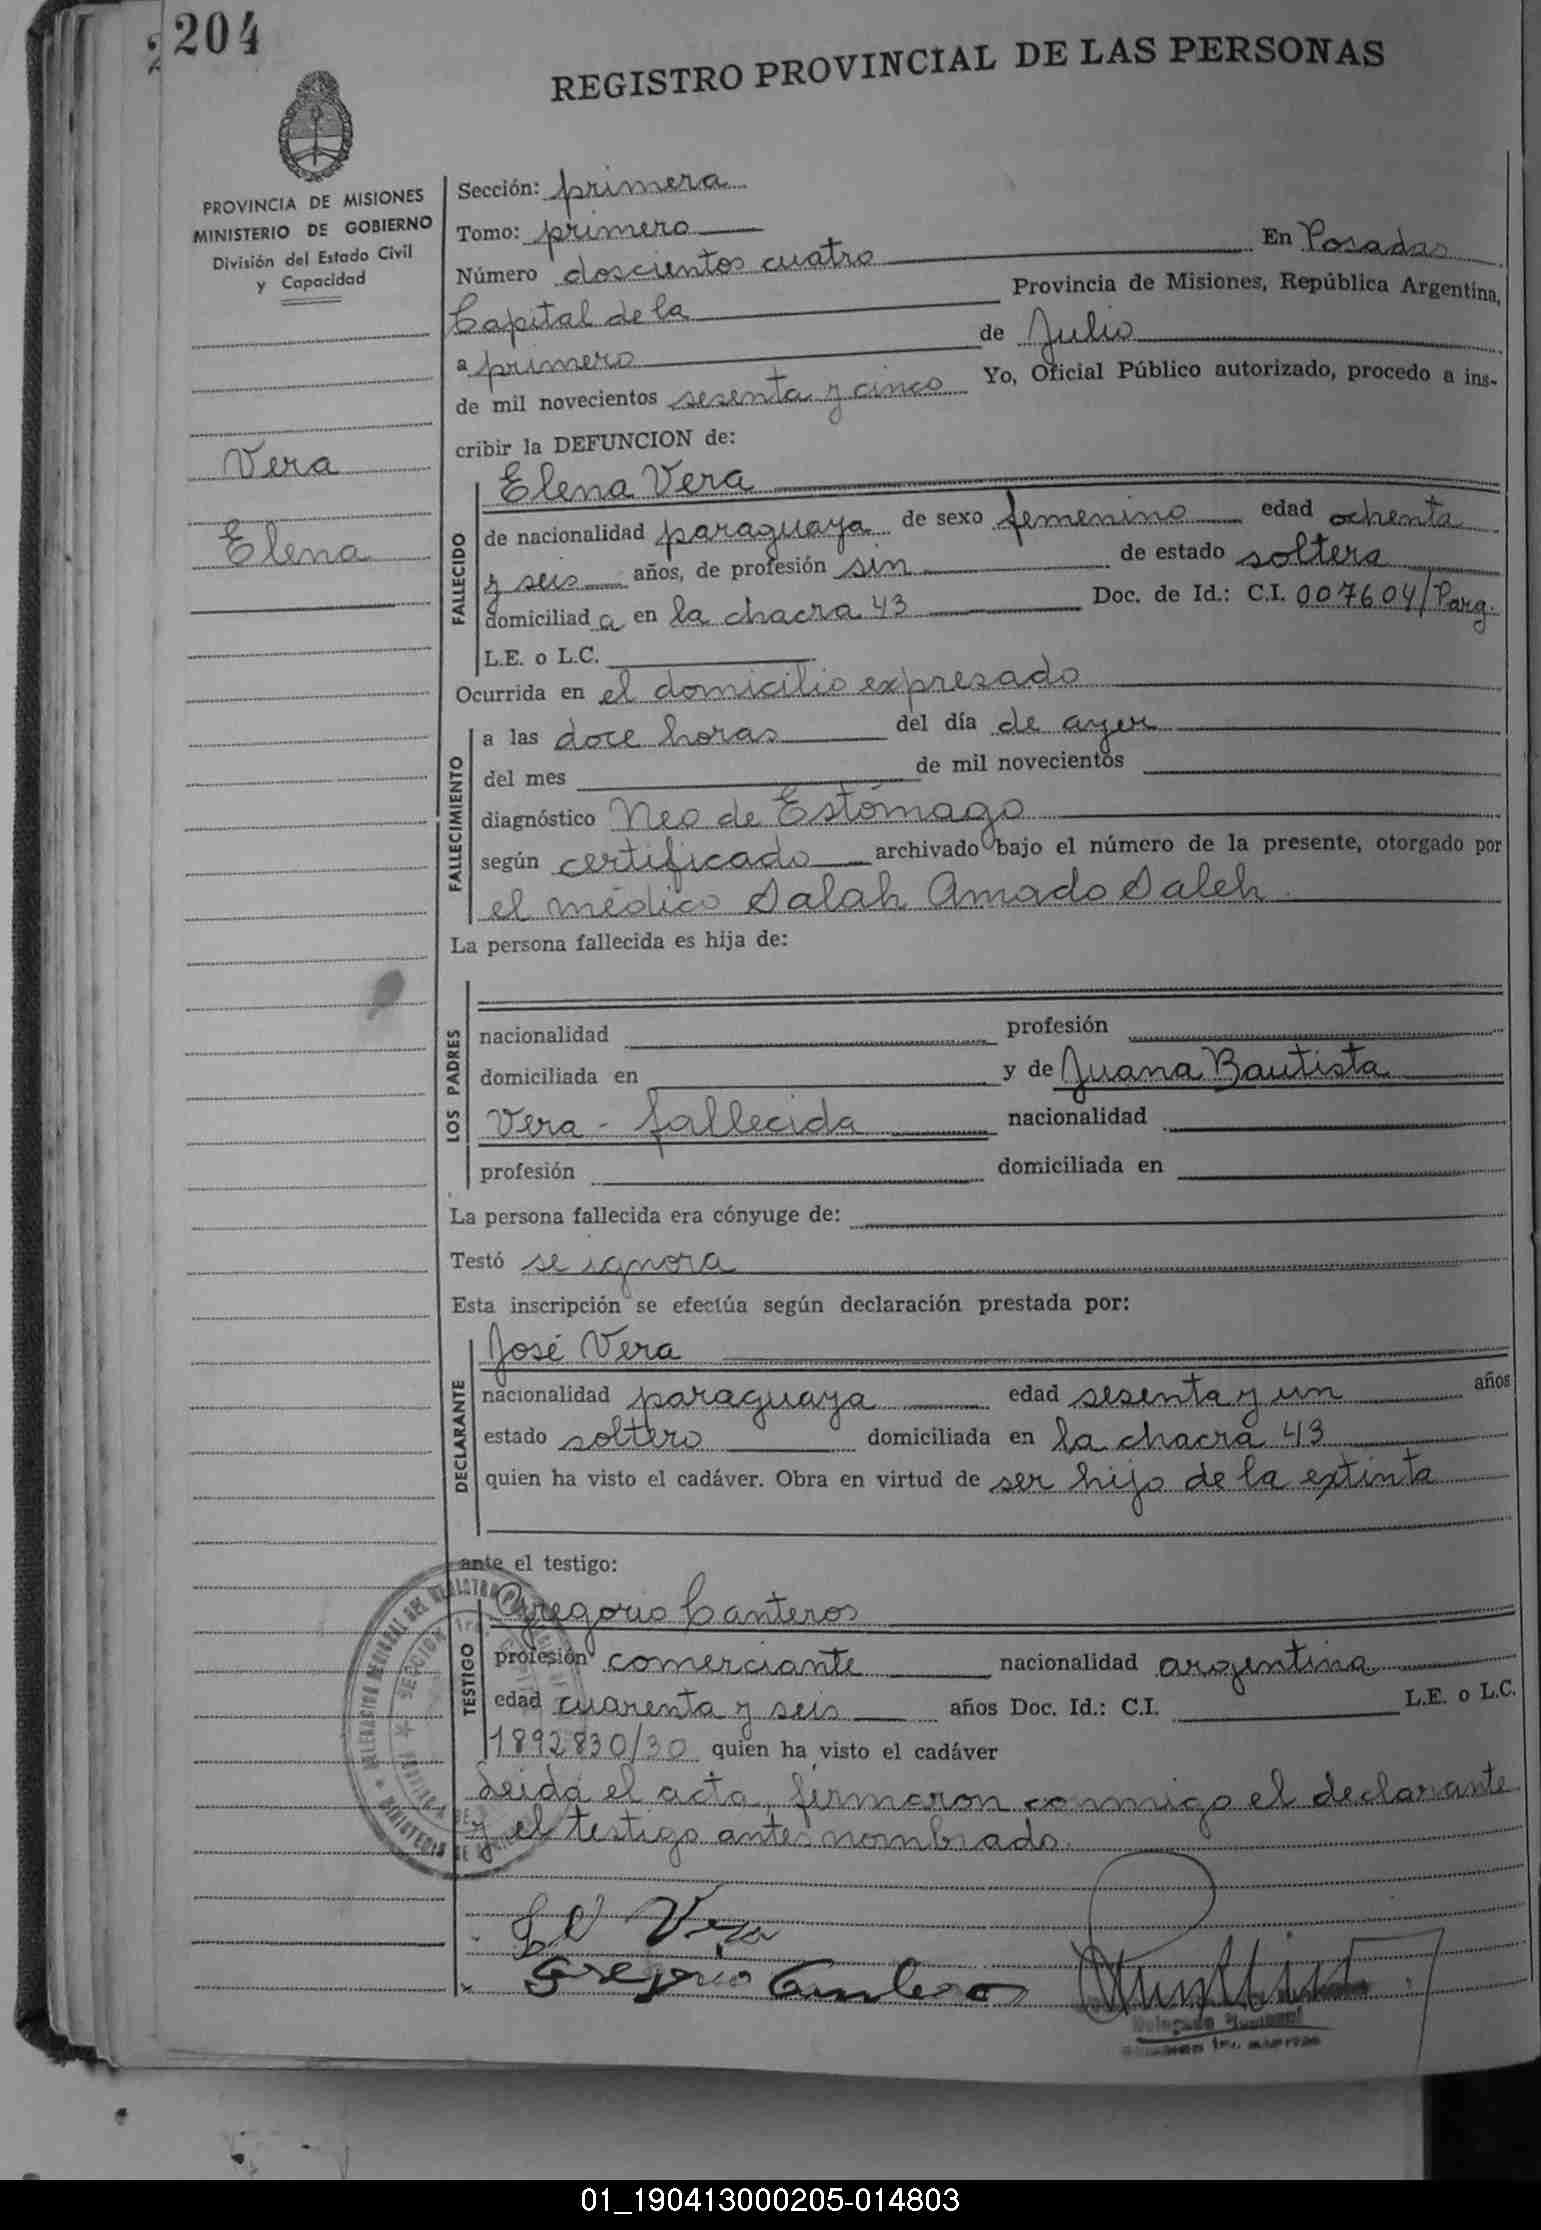 204
REGISTRO PROVINCIAL DE LAS PERSONAS
PROVINCIA DE MISIONES
MINISTERIO DE GOBIERNO
División del Estado Civil
y Capacidad
Vera
Elena
Sección: primera
Tomo: primero
Número doscientos cuatro En Posadas
Capital de la Provincia de Misiones, República Argentina,
a primero de Julio
de mil novecientos sesenta y cinco Yo, Oficial Público autorizado, procedo a ins-
cribir la DEFUNCION de:
FALLECIDO
Elena Vera
de nacionalidad paraguaya de sexo femenino edad ochenta
y seis años, de profesión sin de estado soltera
domiciliad a en la chacra 43 Doc. de Id.: C.I. 007604/Parg.
L.E. o L.C.
Ocurrida en el domicilio expresado
FALLECIMIENTO
a las doce horas del día de ayer
del mes de mil novecientos
diagnóstico Neo de Estómago
según certificado archivado bajo el número de la presente, otorgado por
el médico Salah Amado Saleh.
La persona fallecida es hija de:
LOS PADRES
nacionalidad profesión
domiciliada en y de Juana Bautista
Vera - fallecida nacionalidad
profesión domiciliada en
La persona fallecida era cónyuge de:
Testó se ignora
Esta inscripción se efectúa según declaración prestada por:
DECLARANTE
José Vera
nacionalidad paraguaya edad sesenta y un años
estado soltero domiciliada en la chacra 43
quien ha visto el cadáver. Obra en virtud de ser hijo de la extinta
ante el testigo:
TESTIGO
Gregorio Canteros
profesión comerciante nacionalidad argentina
edad cuarenta y seis años Doc. Id.: C.I. L.E. o L.C.
1892830/30 quien ha visto el cadáver
Leida el acta, firmaron conmigo el declarante
y el testigo antes nombrado.
Vera
Gregorio Canteros
01_190413000205-014803